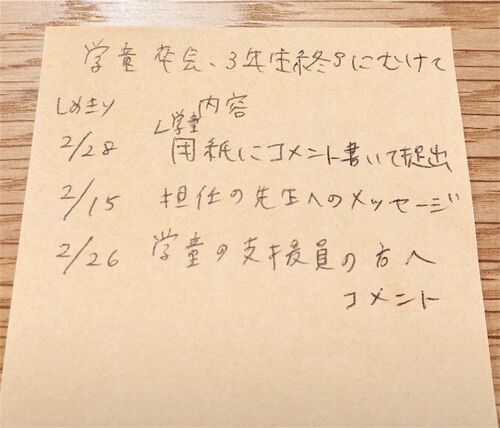 学童 卒会、3年生終りにむけて
しめきり 内容
2/28 学童用紙にコメント書いて提出
2/15 担任の先生へのメッセージ
2/26 学童の支援員の方へ
コメント